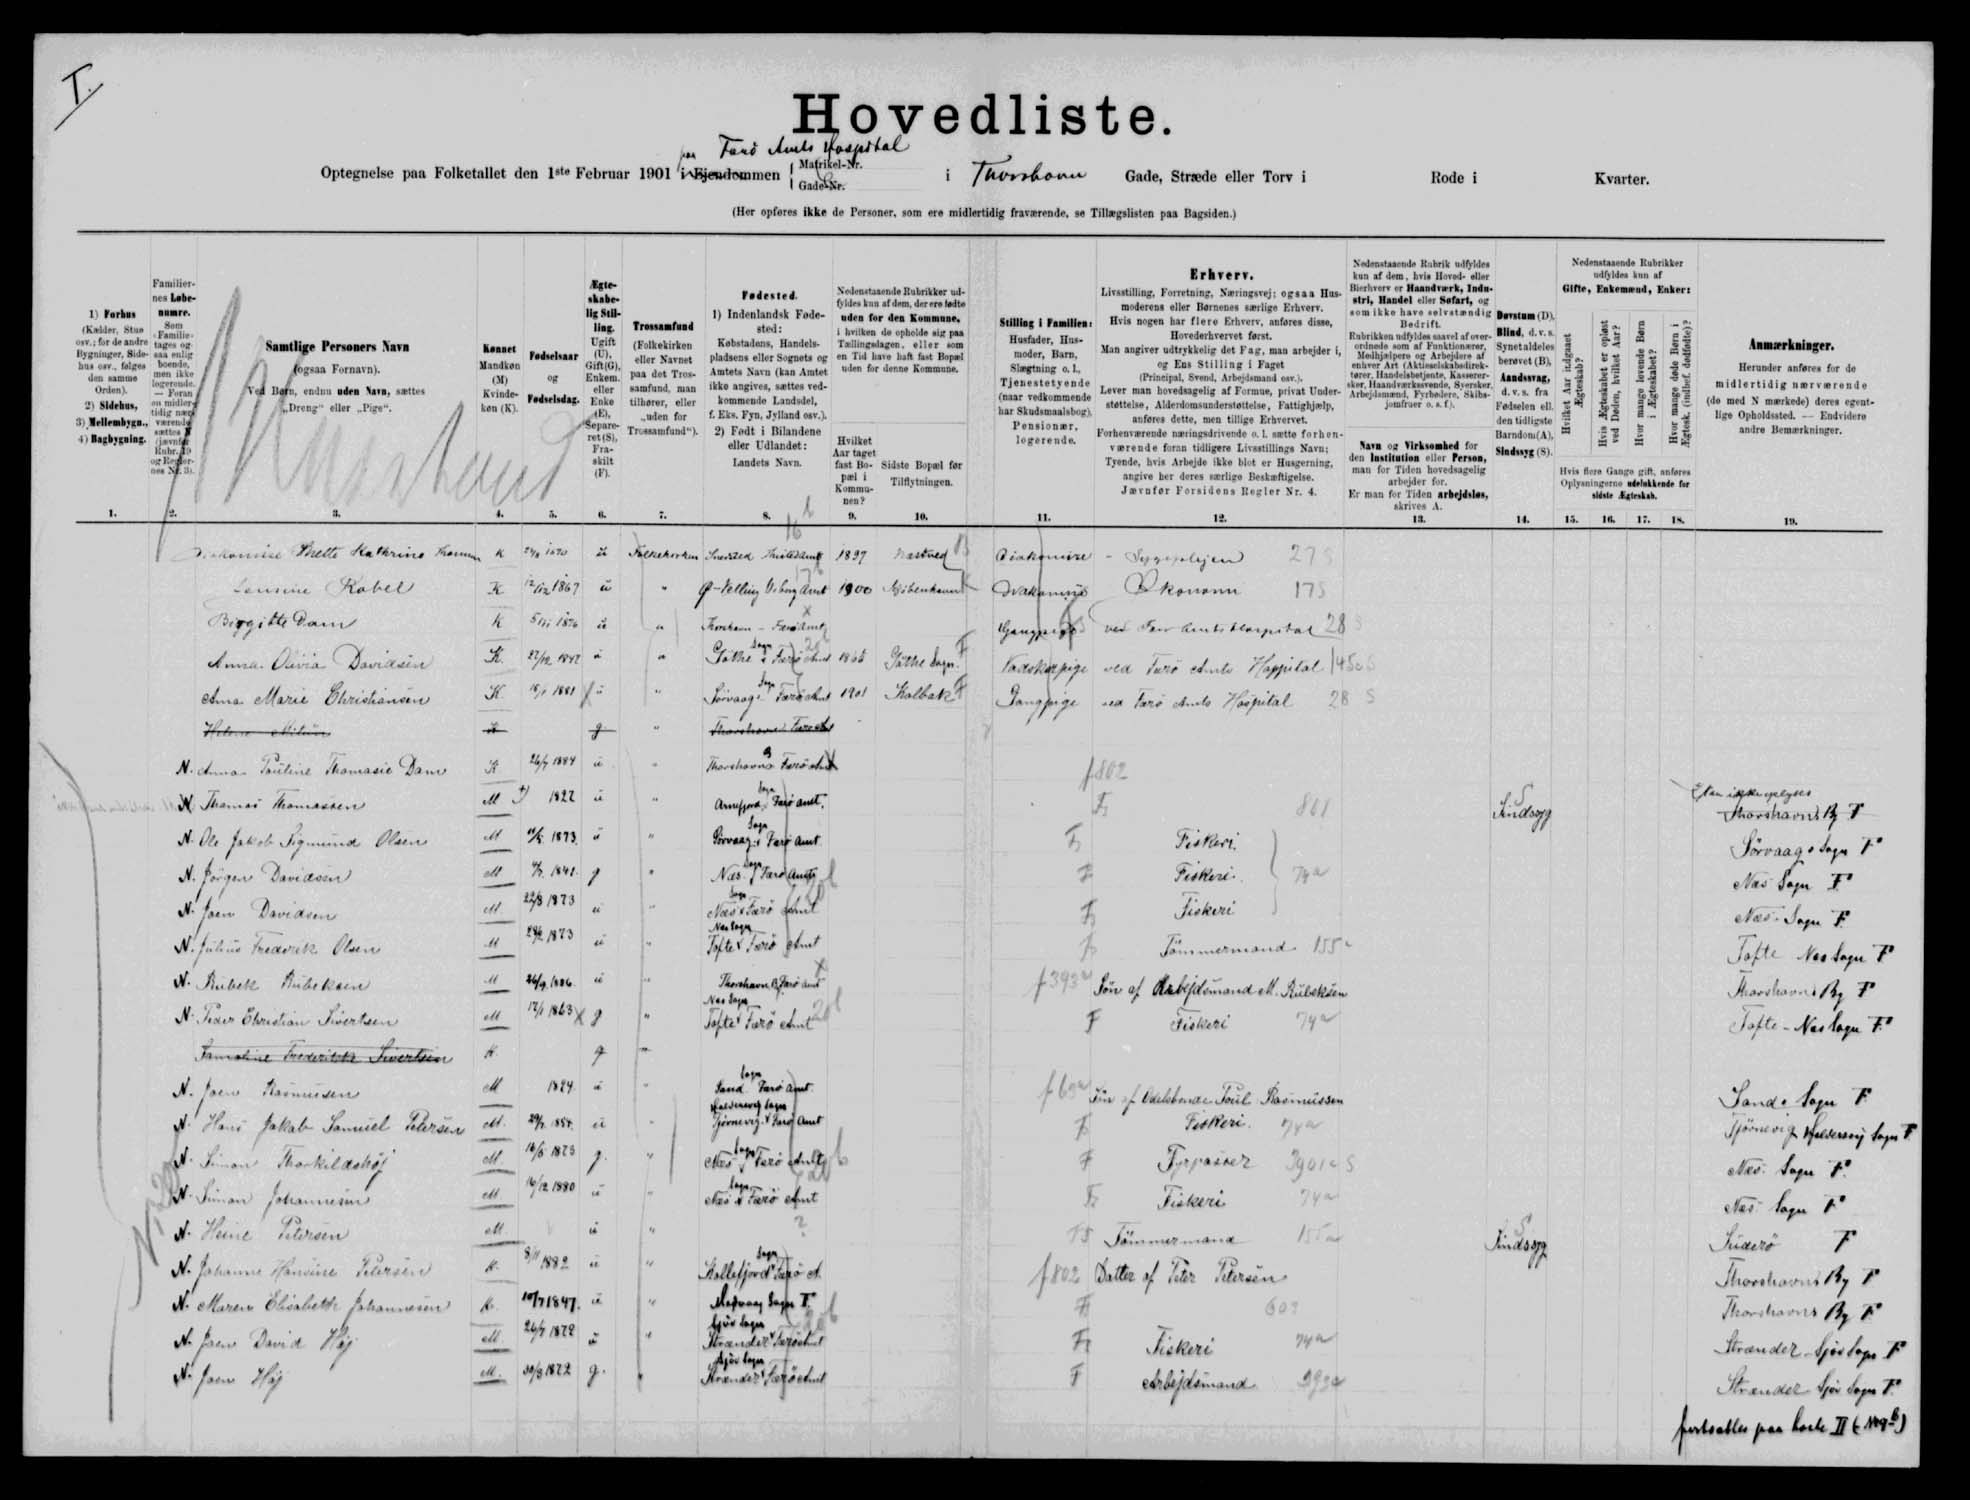 I.
Hovedliste.
paa Færø Amts Hospital
Optegnelse paa Folketallet den 1ste Februar 1901 i Ejendommen { Matrikel-Nr. Gade-Nr. i Thorshavn Gade, Stræde eller Torv i Rode i Kvarter.
(Her opføres ikke de Personer, som ere midlertidig fraværende, se Tillægslisten paa Bagsiden.)
1) Forhus (Kælder, Stue osv.; for de andre Bygninger, Sidehus osv., følges den samme Orden). 2) Sidehus, 3) Mellembygn., 4) Bagbygning.
Familiernes Løbenumre. Som Familie tages ogsaa enlig boende, men ikke logerende. — Foran en midlertidig nærværende sættes N (jævnfør Rubr. 19 og Reglernes Nr. 3).
Samtlige Personers Navn (ogsaa Fornavn). Ved Børn, endnu uden Navn, sættes „Dreng“ eller „Pige“.
Kønnet Mandkøn (M) Kvindekøn (K).
Fødselsaar og Fødselsdag.
Ægteskabelig Stilling. Ugift (U), Gift (G), Enkem. eller Enke (E), Separeret (S), Fraskilt (F).
Trossamfund (Folkekirken eller Navnet paa det Trossamfund, man tilhører, eller „uden for Trossamfund“).
Fødested. 1) Indenlandsk Fødested: Købstadens, Handelspladsens eller Sognets og Amtets Navn (kan Amtet ikke angives, sættes vedkommende Landsdel, f. Eks. Fyn, Jylland osv.). 2) Født i Bilandene eller Udlandet: Landets Navn.
Nedenstaaende Rubrikker udfyldes kun af dem, der ere fødte uden for den Kommune, i hvilken de opholde sig paa Tællingsdagen, eller som en Tid have haft fast Bopæl uden for denne Kommune.
Hvilket Aar taget fast Bopæl i Kommunen?
Sidste Bopæl før Tilflytningen.
Stilling i Familien: Husfader, Husmoder, Barn, Slægtning o. l., Tjenestetyende (naar vedkommende har Skudsmaalsbog), Pensionær, logerende.
Erhverv.
Livsstilling, Forretning, Næringsvej; ogsaa Husmoderens eller Børnenes særlige Erhverv. Hvis nogen har flere Erhverv, anføres disse, Hovederhvervet først. Man angiver udtrykkelig det Fag, man arbejder i, og Ens Stilling i Faget (Principal, Svend, Arbejdsmand osv.). Lever man hovedsagelig af Formue, privat Understøttelse, Alderdomsunderstøttelse, Fattighjælp, anføres dette, men tillige Erhvervet. Forhenværende næringsdrivende o. l. sætte forhenværende foran tidligere Livsstillings Navn; Tyende, hvis Arbejde ikke blot er Husgerning, angive her deres særlige Beskæftigelse. Jævnfør Forsidens Regler Nr. 4.
Nedenstaaende Rubrik udfyldes kun af dem, hvis Hoved- eller Bierhverv er Haandværk, Industri, Handel eller Søfart, og som ikke have selvstændig Bedrift. Rubrikken udfyldes saavel af overordnede som af Funktionærer, Medhjælpere og Arbejdere af enhver Art (Aktieselskabsdirektører, Handelsbetjente, Kasserersker, Haandværkssvende, Syersker, Arbejdsmænd, Fyrbødere, Skibsjomfruer o. s. f.).
Navn og Virksomhed for den Institution eller Person, man for Tiden hovedsagelig arbejder for. Er man for Tiden arbejdsløs, skrives A.
Døvstum (D), Blind, d. v. s. Synet aldeles berøvet (B), Aandssvag, d. v. s. fra Fødselen ell. den tidligste Barndom (A), Sindssyg (S).
Nedenstaaende Rubrikker udfyldes kun af Gifte, Enkemænd, Enker:
Hvilket Aar indgaaet Ægteskab?
Hvis Ægteskabet er opløst ved Døden, hvilket Aar?
Hvor mange levende Børn i Ægteskabet?
Hvor mange døde Børn i Ægtesk. (indbef. dødfødte)?
Hvis flere Gange gift, anføres Oplysningerne udelukkende for sidste Ægteskab.
Anmærkninger. Herunder anføres for de midlertidig nærværende (de med N mærkede) deres egentlige Opholdssted. — Endvidere andre Bemærkninger.
1. 2. 3. 4. 5. 6. 7. 8. 9. 10. 11. 12. 13. 14. 15. 16. 17. 18. 19.
Diakonisse Mette Kathrine K ü Folkekirken 1897 Næstved Diakonisse - Sygeplejen 27 S
Kobel K 12/12 1867 ü " Ø-Velling Viborg Amt 1900 Kjøbenhavn Diakonisse Økonom 17 S
Birgitte Dam K ü " Thorshavn - Færø Amt Gangpige ved Færø Amts Hospital 28 S
Anna Olivia Davidsen K. 27/12 1847 ü " Göthe Sogn Færø Amt 1866 Göthe Sogn. F Vadskerpige ved Færø Amts Hospital 145 S
Anna Marie Christiansen K 18/1 1881 ü " Sörvaag Sogn Færø Amt 1901 Kalbak F Gangpige ved Færø Amts Hospital 28 S
Helene K g " Thorshavn Færø Amt
N. Anna Pauline Thomasie Dam K 26/7 1884 ü " Thorshavn Færø Amt f 802
N Thomas Thomassen M 1822 ü " Arnefjord Sogn Færø Amt. F 801 Sindsyg S Thorshavns By F
N. Ole Jakob Sigmund Olsen M 1873 ü " Sörvaag Sogn Færø Amt F Fiskeri Sörvaags Sogn F
N. Jörgen Davidsen M 1841 g " Næs Sogn Færø Amt F Fiskeri 74a Næs Sogn F.
N. Joen Davidsen M. 22/8 1873 ü " Næs Sogn Færø Amt F Fiskeri Næs Sogn F.
N. Julius Frederik Olsen M 1873 ü " Næs Sogn Tofte Færø Amt F Tömmermand 155a Tofte Næs Sogn F
N. Rubek Rubeksen M 26/9 1886. ü " Thorshavn B. Færø Amt f 393a Sön af Arbejdsmand M. Rubeksen Thorshavns By F
N. Peder Christian Sivertsen M 17/1 1863 g " Næs Sogn Tofte Færø Amt 20b F Fiskeri 74a Tofte - Næs Sogn F.
Frederikke Sivertsen K. g "
N. Joen Rasmussen M 1824. ü " Sand Sogn Færø Amt f 63a Sön af Odelsbonde Poul Rasmussen Sands Sogn F
N. Hans Jakob Samuel Petersen M. 1884. ü " Haldersvig Sogn Tjörnevig Færø Amt F Fiskeri. 74a Tjörnevig Haldersvig Sogn F
N. Simon Thorkildshöj M. 1873 g. " Næs Sogn Færø Amt F Fyrpasser Næs Sogn F.
N. Simon Johannesen M. 16/12 1880 ü " Næs Sogn Færø Amt F Fiskeri 74a Næs Sogn F
N. Heine Petersen M. ü " ? F Tömmermand 155a Sindsyg S Suderö F
N. Johanne Hansine Petersen K. 8/11 1882 ü " Kollefjord Sogn Færø A. f 802 Datter af Peter Petersen Thorshavns By F
N. Maren Elisabeth Johannesen K. 10/7 1847. ü " Sogn F. F 603 Thorshavns By F
N. Joen David Höj M. 26/7 1872 ü " Sjöv Sogn Strænder Færø Amt F Fiskeri 74a Strænder - Sjöv Sogn F
N. Joen Höj M. 30/3 1822 g. " Sjöv Sogn Strænder Færø Amt F Arbejdsmand 393a Strænder Sjöv Sogn F.
fortsættes paa Liste II